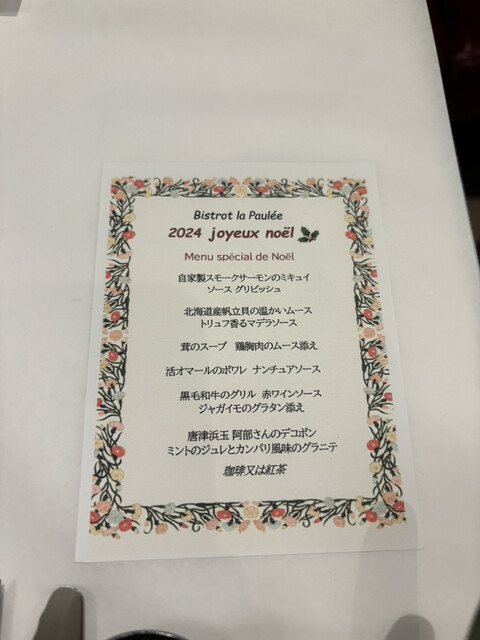 Bistrot la Paulée
2024 joyeux noël
Menu spécial de Noël
自家製スモークサーモンのミキュイ
ソース グリビッシュ
北海道産帆立貝の温かいムース
トリュフ香るマデラソース
茸のスープ 鶏胸肉のムース添え
活オマールのポワレ ナンチュアソース
黒毛和牛のグリル 赤ワインソース
ジャガイモのグラタン添え
唐津浜玉 阿部さんのデコポン
ミントのジュレとカンパリ風味のグラニテ
珈琲又は紅茶